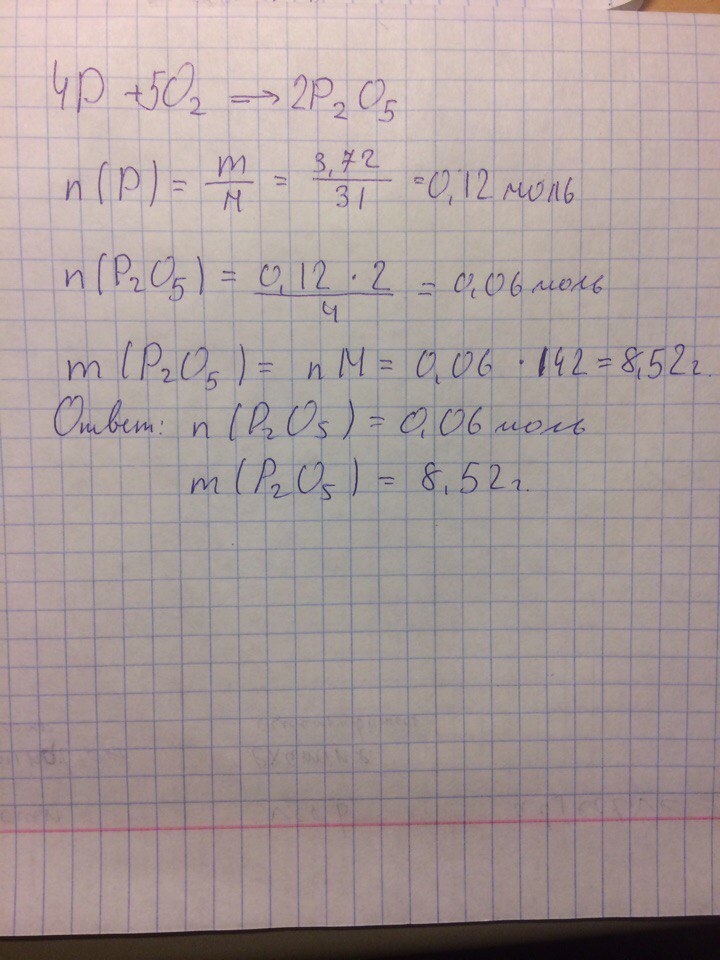 4P + 5O₂ ⟹ 2P₂O₅
n(P) = m/M = 3,72/31 = 0,12 моль
n(P₂O₅) = 0,12 · 2/4 = 0,06 моль
m(P₂O₅) = nM = 0,06 · 142 = 8,52 г.
Ответ: n(P₂O₅) = 0,06 моль
m(P₂O₅) = 8,52 г.